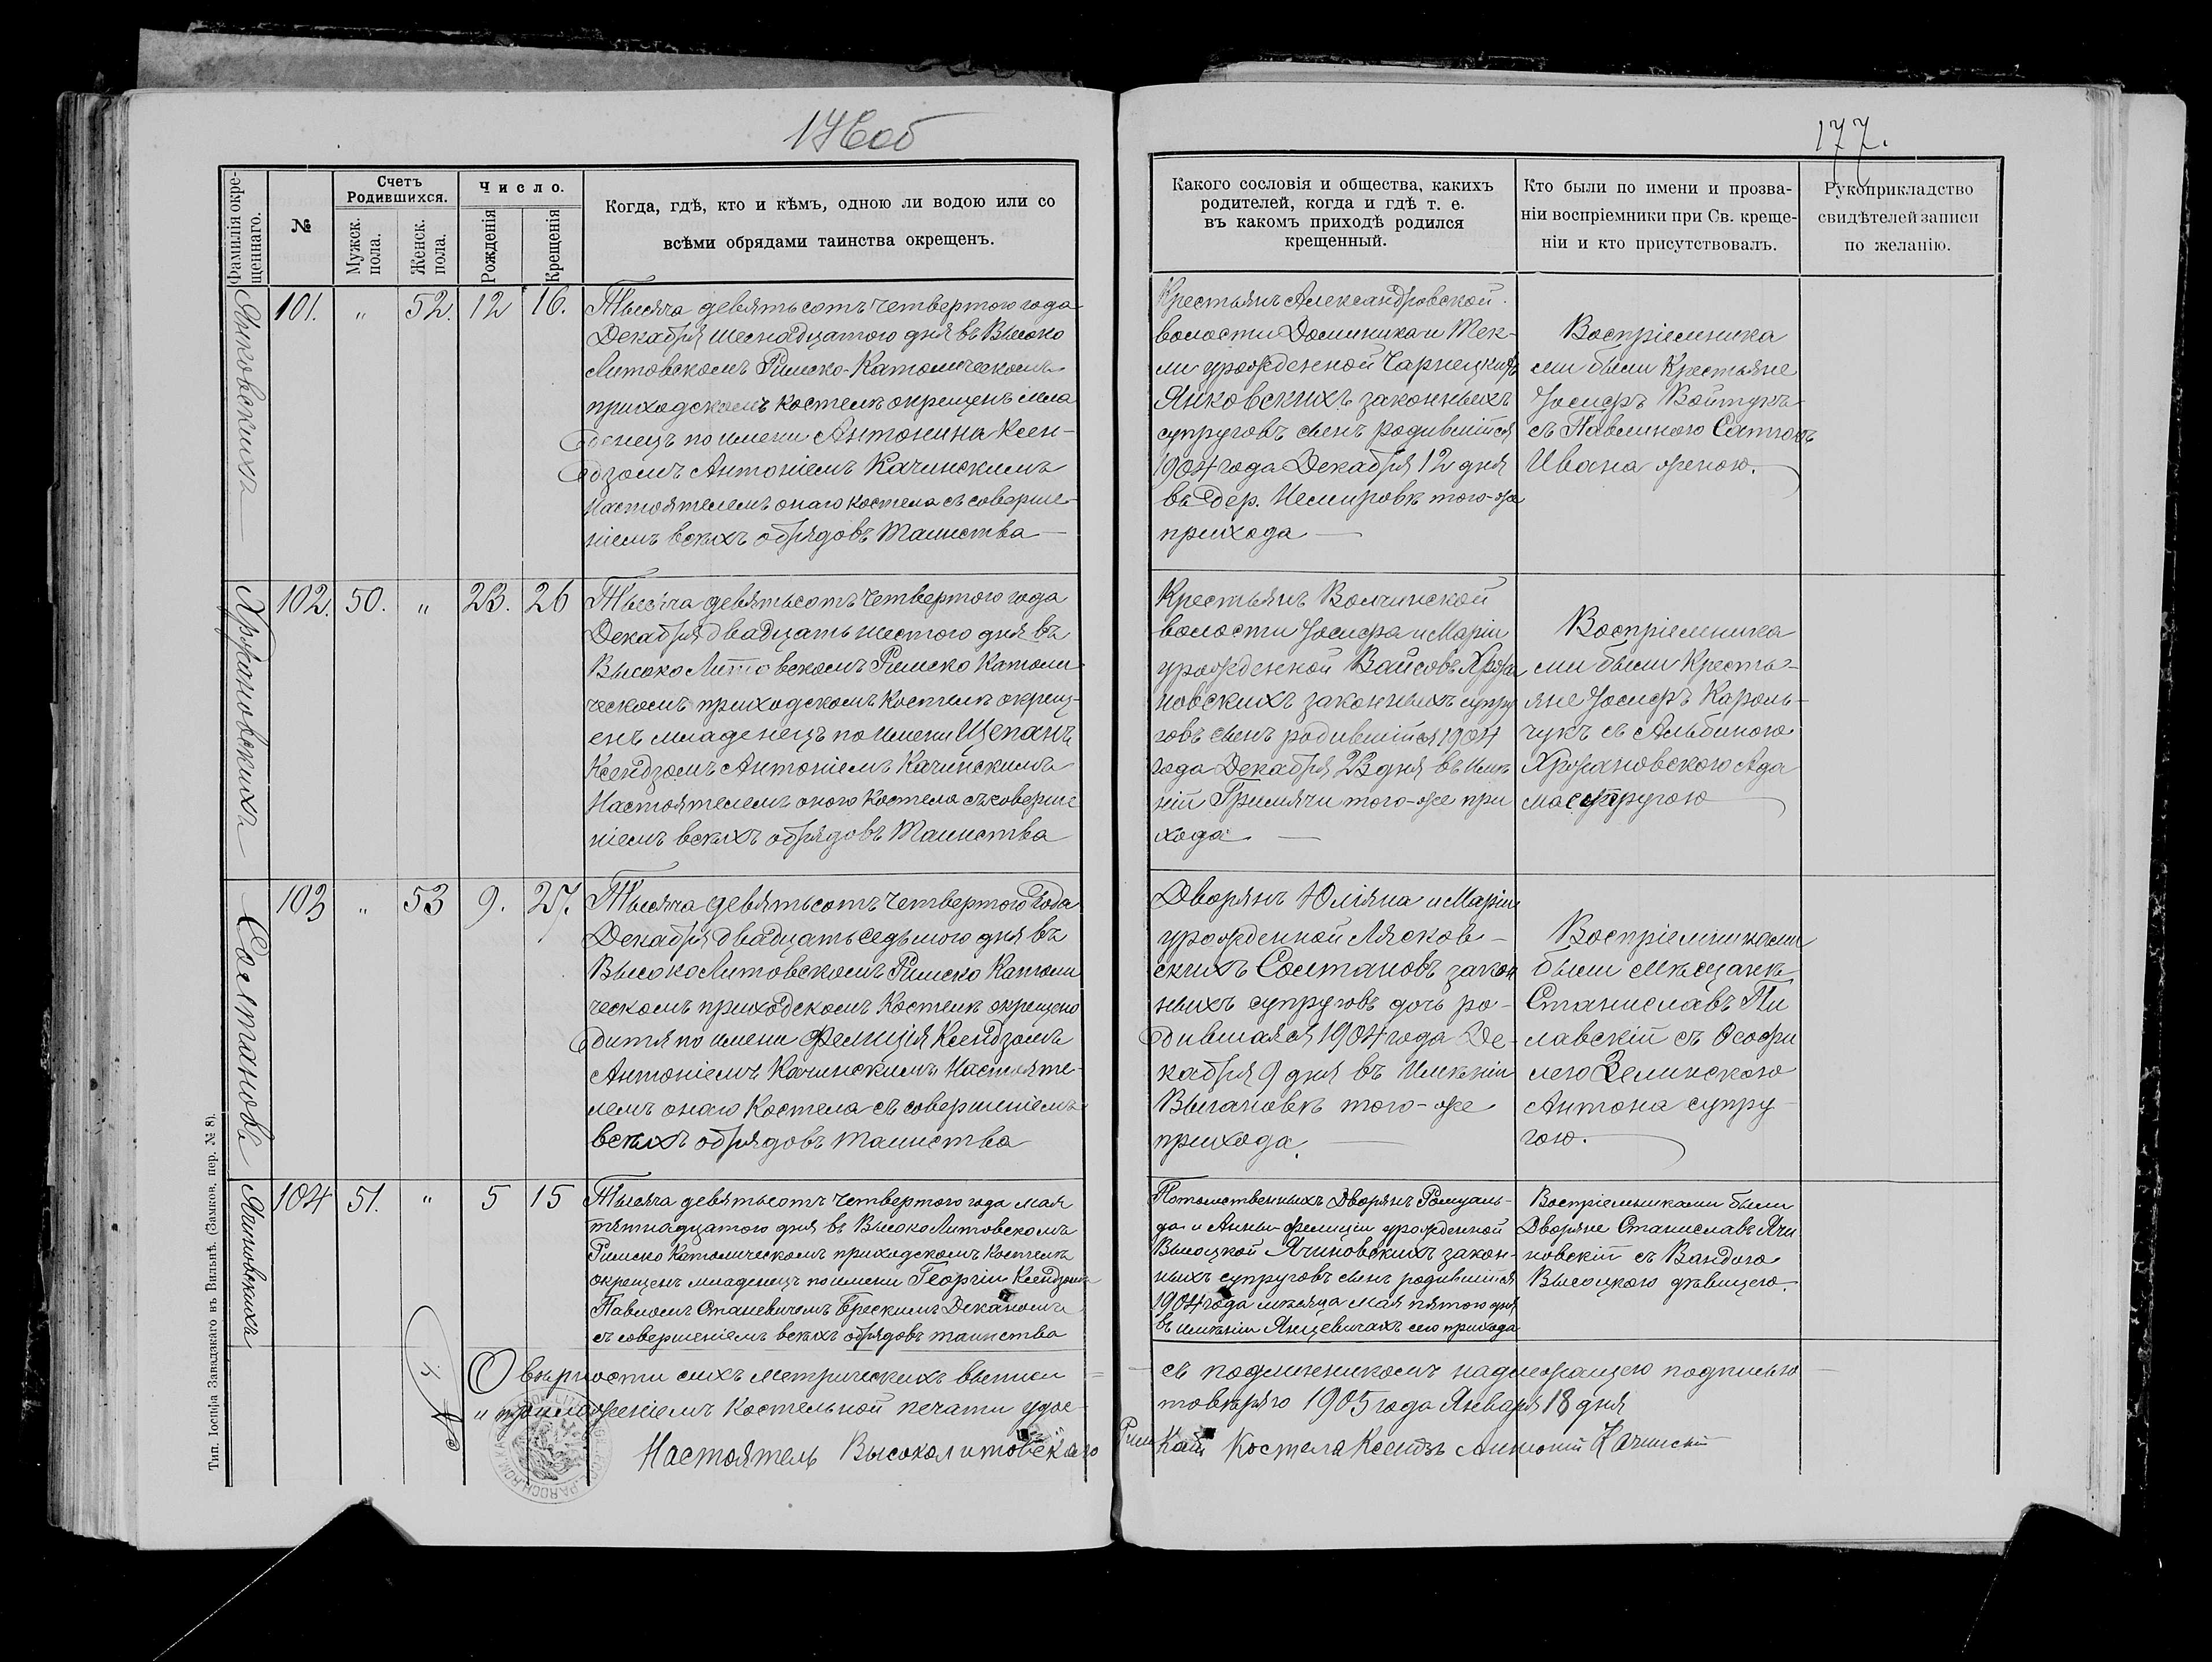 176об
177.
Фамилія окре-
щеннаго.
№
Счетъ
Родившихся.
Мужск.
пола.
Женск.
пола.
Число.
Рожденія
Крещенія
Когда, гдѣ, кто и кѣмъ, одною ли водою или со
всѣми обрядами таинства окрещенъ.
Какого сословія и общества, какихъ
родителей, когда и гдѣ т. е.
въ какомъ приходѣ родился
крещенный.
Кто были по имени и прозва-
ніи воспріемники при Св. креще-
ніи и кто присутствовалъ.
Рукоприкладство
свидѣтелей записи
по желанію.
Янковскихъ
101. " 52. 12 16.
Тысяча девятьсотъ четвертого года
Декабря шеснадцатого дня въ Высоко
Литовскомъ Римско-Католическомъ
приходскомъ костелѣ окрещенъ мла
денецъ по имени Антонина Ксен-
дзомъ Антоніемъ Качинскимъ
Настоятелемъ онаго костела съ соверше-
ніемъ всѣхъ обрядовъ Таинства
Крестьянъ Александровской
волости Доминика и Тек-
ли урожденной Чарнецкихъ
Янковскихъ законныхъ
супруговъ сынъ родившійся
1904 года Декабря 12 дня
въ дер. Немировкѣ того-же
прихода
Воспріемника
ми были Крестьяне
Іосифъ Войтукъ
съ Павлиною
Ивана женою.
Хржановскихъ
102. 50. " 23. 26
Тысяча девятьсотъ четвертого года
Декабря двадцать шестого дня въ
Высоко Литовскомъ Римско Католи
ческомъ приходскомъ Костелѣ окрещ-
енъ младенецъ по имени Щепанъ
Ксендзомъ Антоніемъ Качинскимъ
Настоятелемъ оного Костела съ соверше
ніемъ всѣхъ обрядовъ Таинства
Крестьянъ Волчинской
волости Іосифа и Маріи
урожденной Вайсовъ Хржа
новскихъ законныхъ супру
говъ сынъ родившійся 1904
года Декабря 23 дня въ Имѣ
ніи Гримячи того-же при
хода
Воспріемника
ми были Кресть-
яне Іосифъ Кароль-
чукъ съ Альбиною
Хржановскою Ада
ма супругою
Солтановъ
103 " 53 9. 27.
Тысяча девятьсотъ четвертого Года
Декабря двадцать седьмого дня въ
Высоко Литовскомъ Римско Католи
ческомъ приходскомъ Костелѣ окрещено
дитя по имени Фелиція Ксендзомъ
Антоніемъ Качинскимъ Настояте-
лемъ онаго Костела съ совершеніемъ
всѣхъ обрядовъ таинства
Дворянъ Юліяна и Маріи
урожденной Лясков-
скихъ Солтановъ закон
ныхъ супруговъ дочь ро-
дившаяся 1904 года Де-
кабря 9 дня въ Имѣніи
Выгановкѣ того-же
прихода.
Воспріемниками
были Мѣщанѣ
Станиславъ Пи
лавскій съ Ѳеофи
лею Зелинскою
Антона супру-
гою.
Ячиновскихъ
104 51. " 5 15
Тысяча девятьсотъ четвертого года мая
пятнадцатого дня въ Высоко Литовскомъ
Римско Католическомъ приходскомъ Костелѣ
окрещенъ младенецъ по имени Георгій Ксендзомъ
Павломъ Станевичемъ Брескимъ Деканомъ
съ совершеніемъ всѣхъ обрядовъ таинства
Потомственныхъ Дворянъ Ромуаль-
да и Анны-Фелиціи урожденной
Высоцкой Ячиновскихъ закон-
ныхъ супруговъ сынъ родившійся
1904 года мѣсяца мая пятого дня
въ имѣніи Янцевичахъ сего прихода
Воспріемниками были
Дворяне Станиславъ Ячи
новскій съ Вандою
Высоцкою дѣвицею.
О вѣрности сихъ метрическихъ выписи = съ подлинникомъ надлежащею подписью
и приложеніемъ Костельной печати удос- товѣряю 1905 года Января 18 дня
Настоятель Высоколитовскаго Рим Кат Костела Ксендзъ Антоній Качинскій
Тип. Іосифа Завадзкаго въ Вильнѣ. (Замков. пер. № 8).